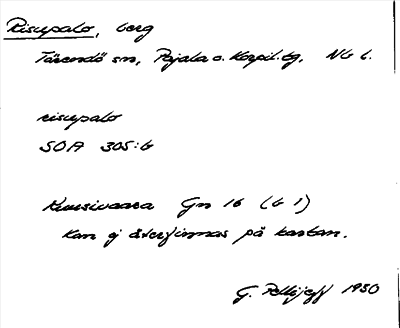 Risupalo, berg
Tärendö sn, Pajala o. Korpil. tg, Nb l.
risupalo
SOA 305:6
Kuusivaara Gn 16 (b 1)
Kan ej återfinnas på kartan.
G. Pellijeff 1950